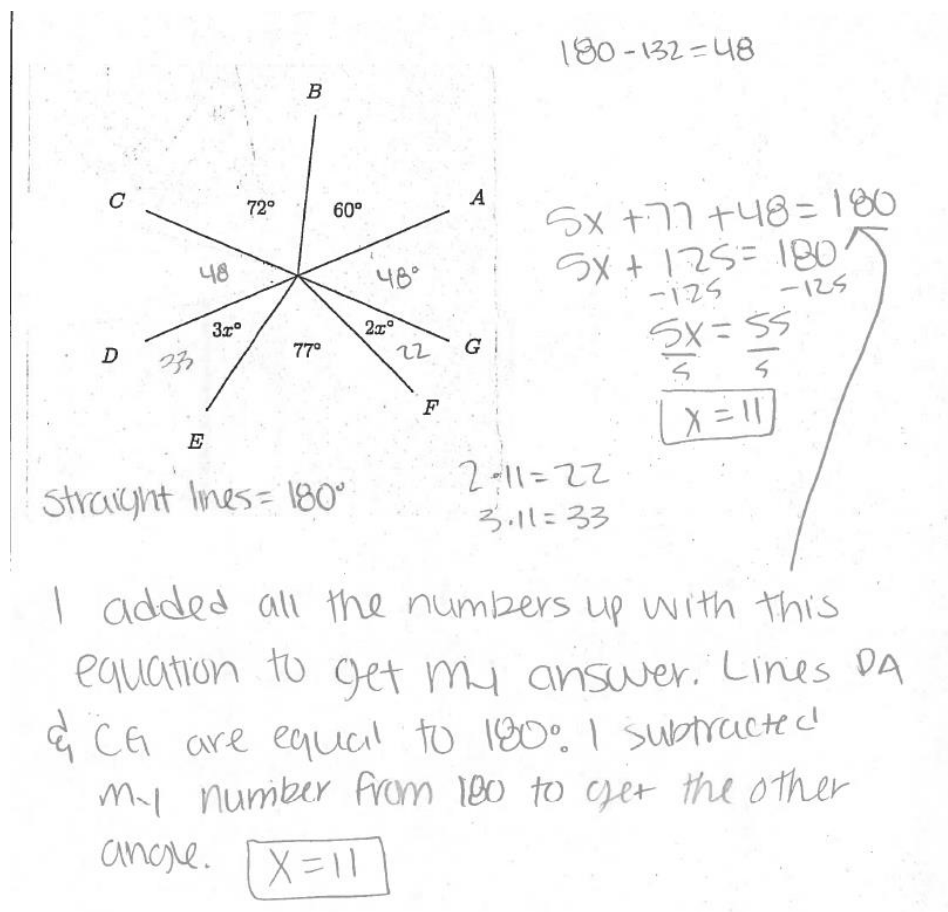 180 - 132 = 48
B
C
72°
60°
A
48
48°
D
3x°
33
77°
2x°
22
G
F
E
5x + 77 + 48 = 180
5x + 125 = 180
-125 -125
5x = 55
5 5
x = 11
straight lines = 180°
2 · 11 = 22
3 · 11 = 33
I added all the numbers up with this
equation to get my answer. Lines DA
& CG are equal to 180°. I subtracted
my number from 180 to get the other
angle. X = 11